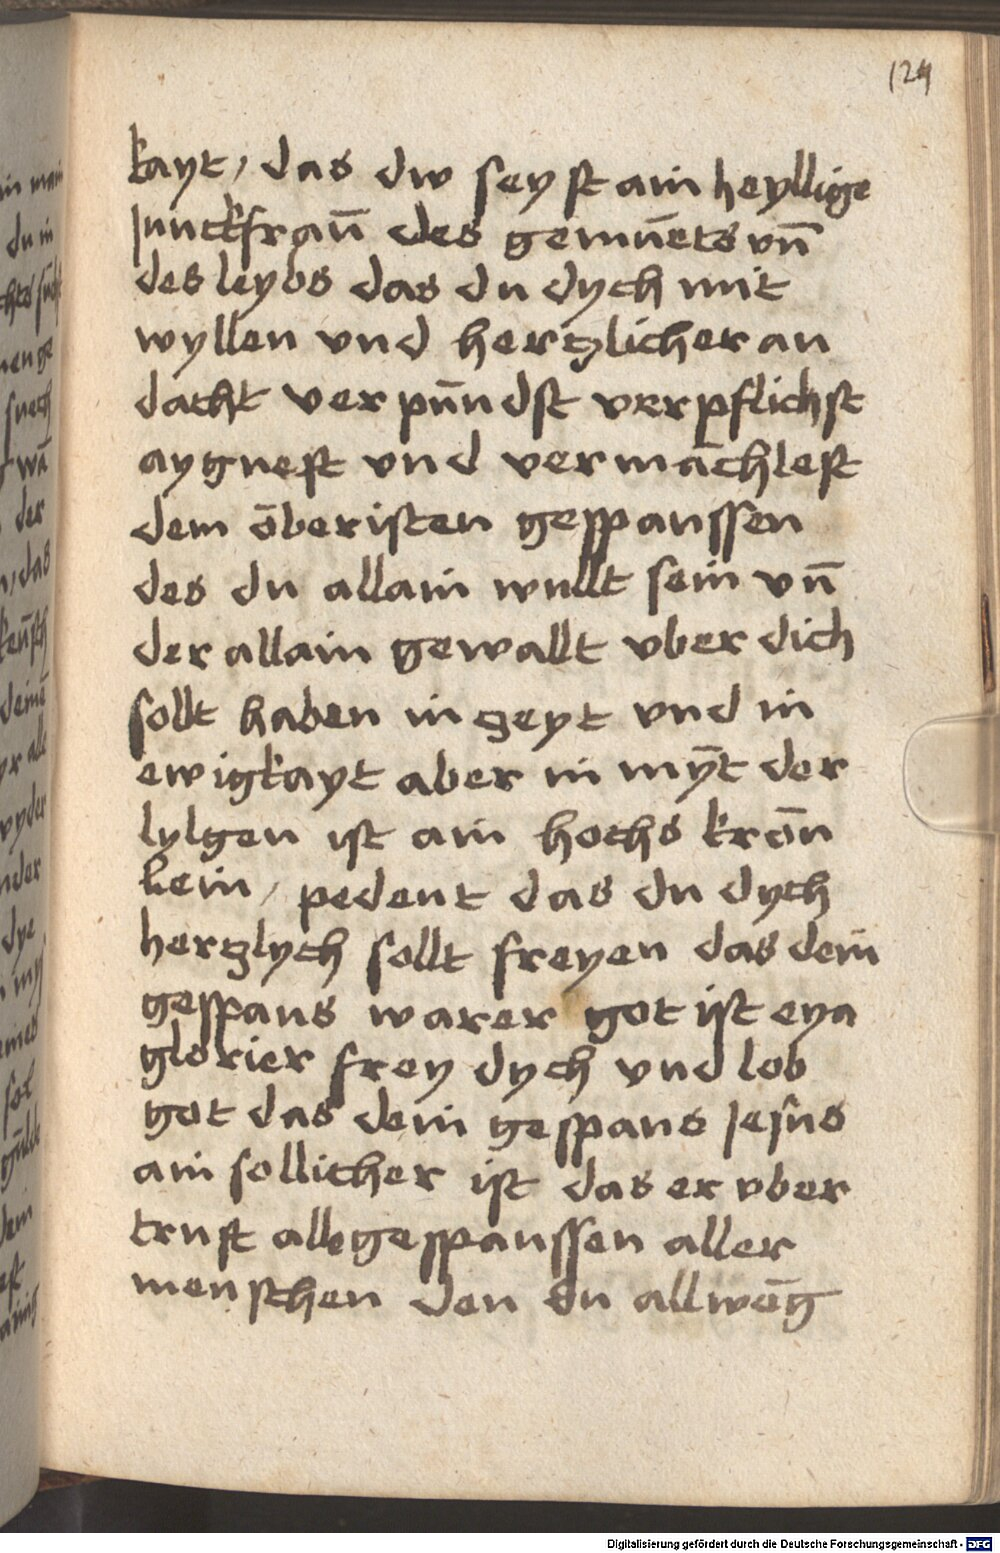 124
kayt, das dw seyst ain heyllige
Junckfraw̄ des gemūets vn̄
des leybs das du dych mit
wyllen vnd hertzlicher an
dacht verpūndst verpflichst
aygnest vnd vermāchlest
dem ōberisten gesppanssen
des du allain wullt sein vn̄
der allain gewallt vber dich
sollt haben in zeyt vnd in
ewigkayt aber in mȳt der
lylgen ist ain hochs krōn
lein, pedeut das du dych
hertzlych sollt freyen das dein
gesppans warer got ist eya
glorier frey dych vnd lob
got das dein gesppans Jesus
ain sollicher ist das er vber
trust alle gesppanssen aller
menschen den du allwēg
Digitalisierung gefördert durch die Deutsche Forschungsgemeinschaft - DFG